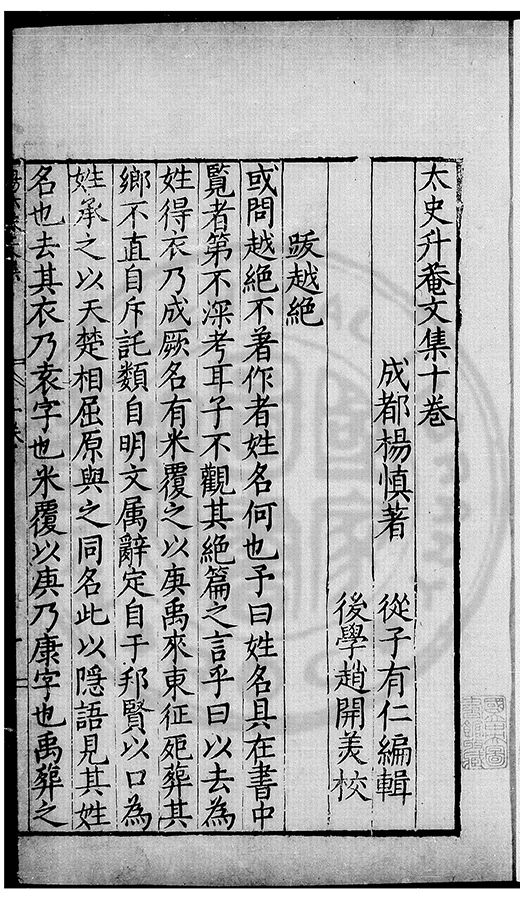 太史升菴文集十卷
成都楊慎著 從子有仁編輯
後學趙開美校
跋越絕
或問越絕不著作者姓名何也予曰姓名具在書中
覧者第不深考耳子不觀其絕篇之言乎曰以去為
姓得衣乃成厥名有米覆之以庚禹來東征死葬其
鄉不直自斥託類自明文属辭定自于邦賢以口為
姓承之以天楚相屈原與之同名此以隱語見其姓
名也去其衣乃袁字也米覆以庚乃康字也禹葬之